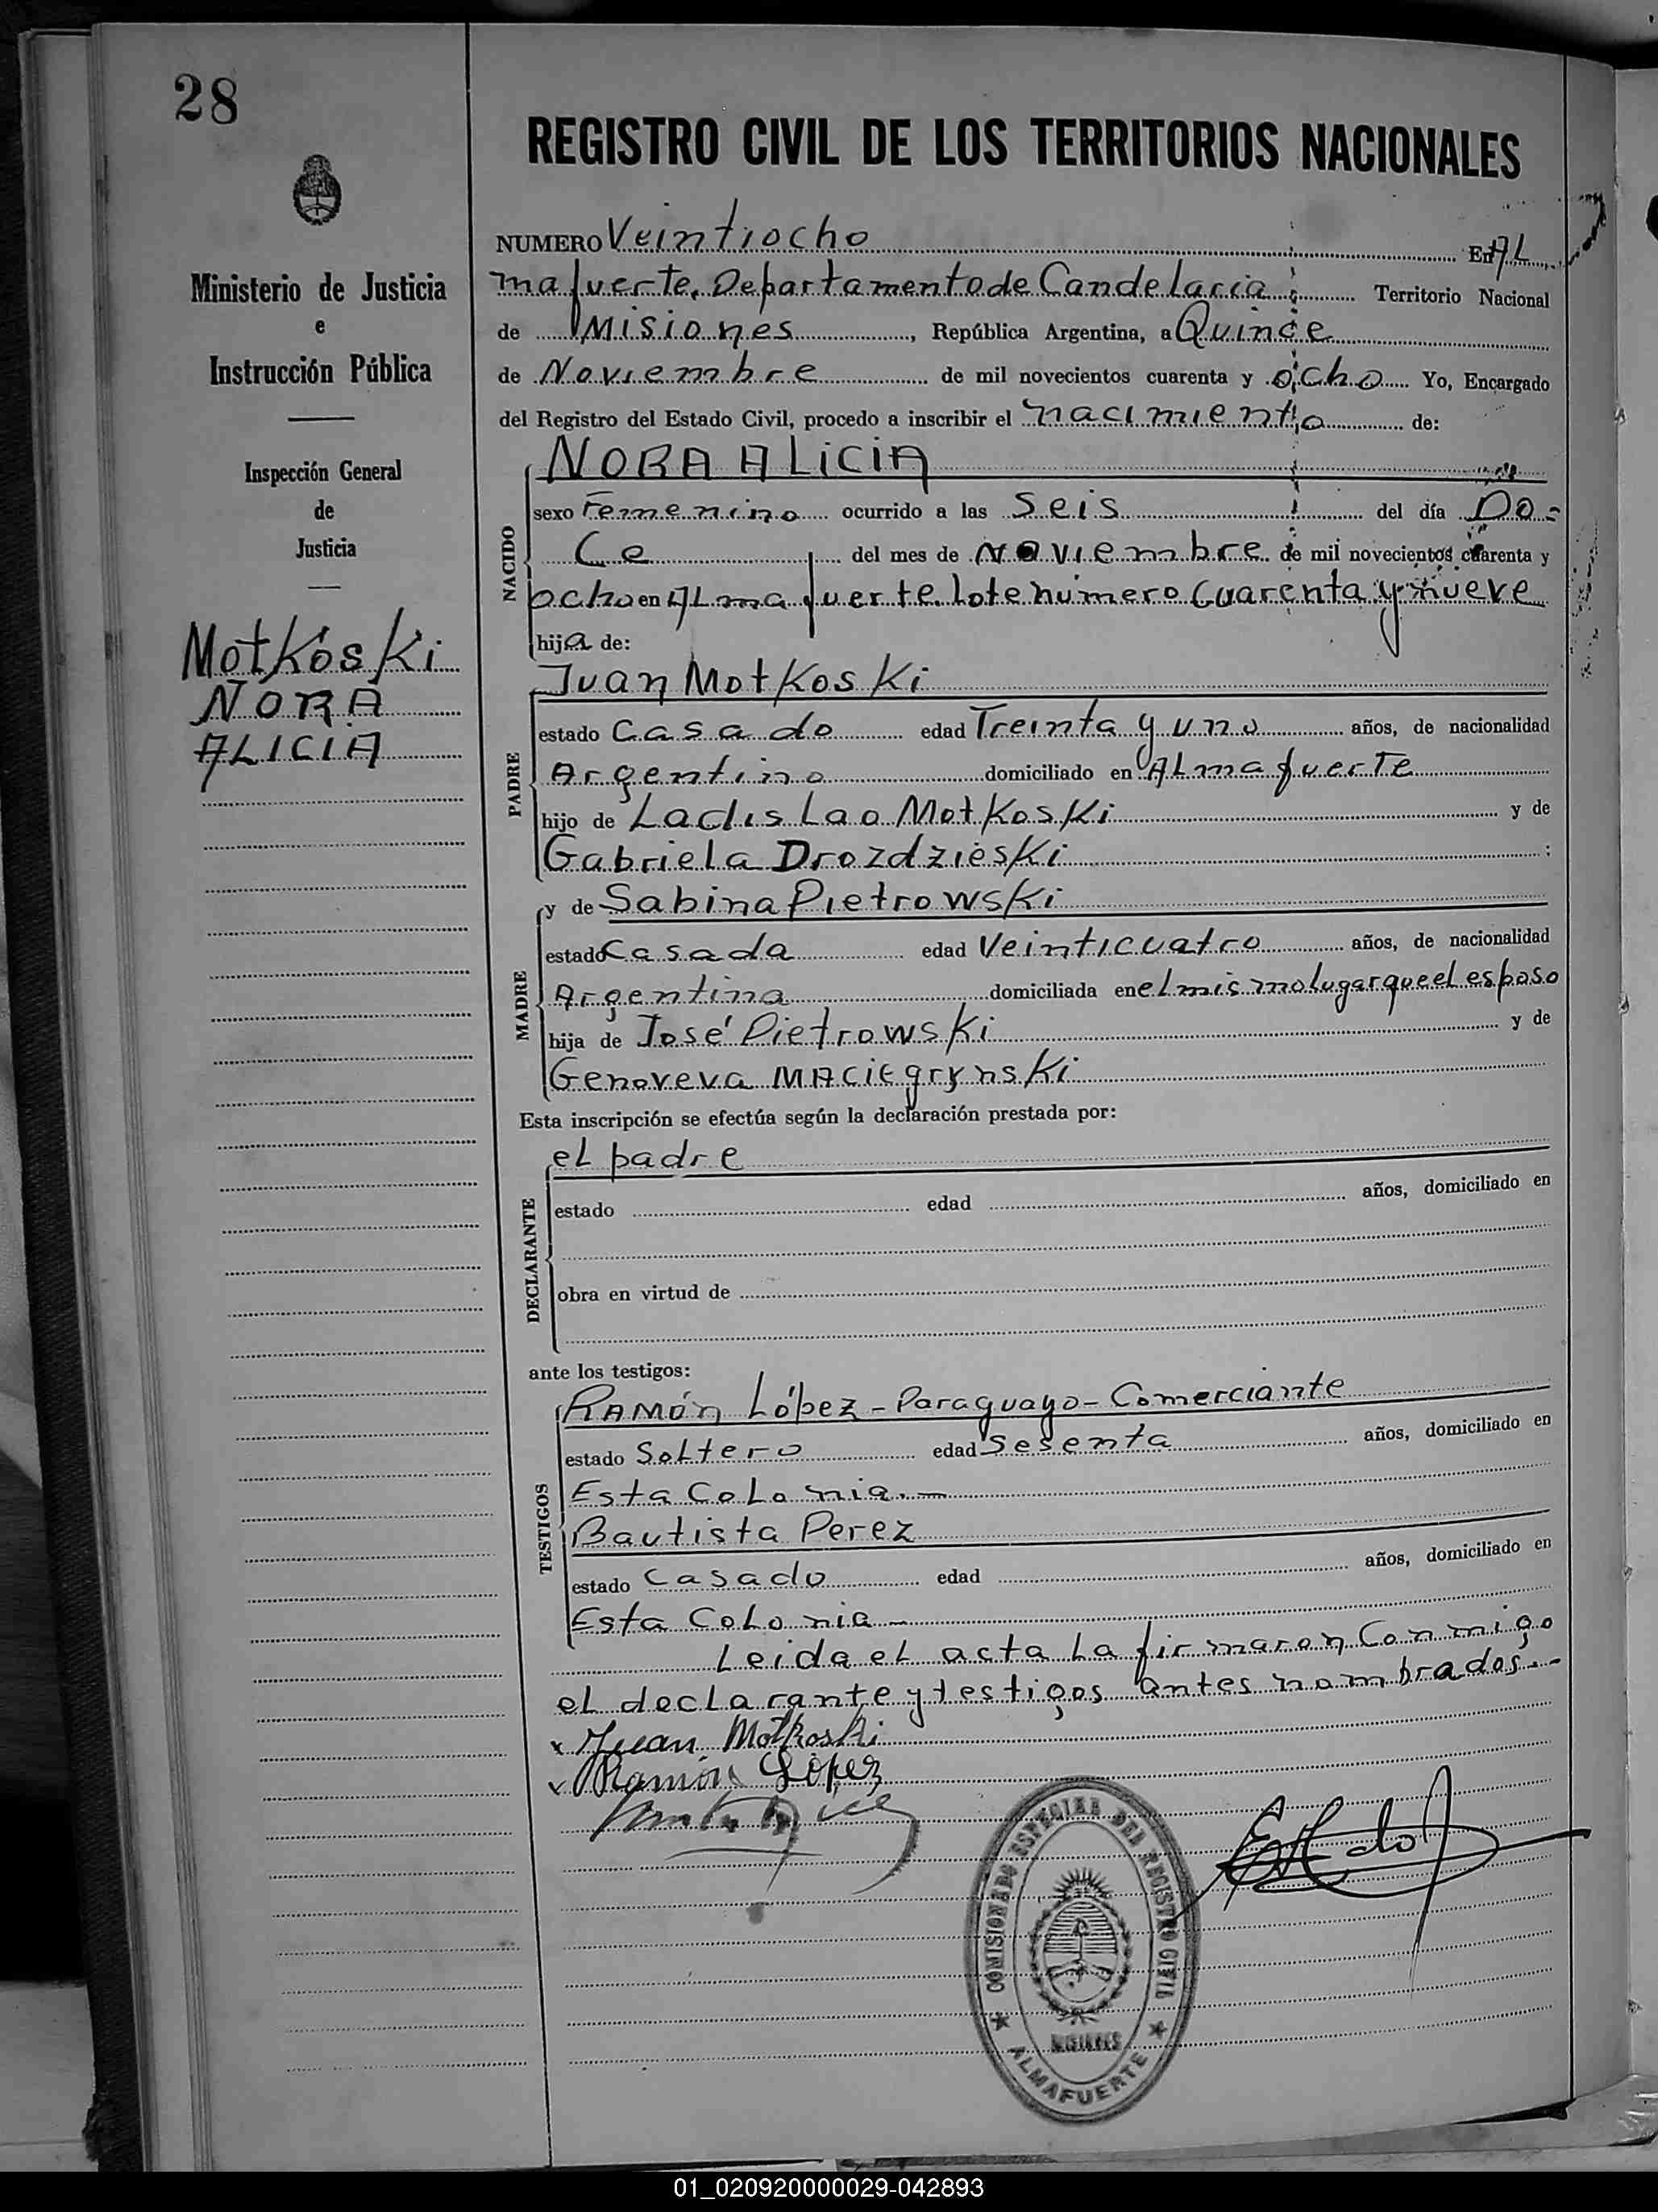 28
REGISTRO CIVIL DE LOS TERRITORIOS NACIONALES
Ministerio de Justicia
e
Instrucción Pública
Inspección General
de
Justicia
Motkoski
NORA
ALICIA
NUMERO Veintiocho En AL
mafuerte. Departamento de Candelaria Territorio Nacional
de Misiones, República Argentina, a Quince
de Noviembre de mil novecientos cuarenta y ocho Yo, Encargado
del Registro del Estado Civil, procedo a inscribir el nacimiento de:
NACIDO
NORA ALICIA
sexo Femenino ocurrido a las Seis del día Do-
ce del mes de Noviembre de mil novecientos cuarenta y
ocho en ALmafuerte. Lote número Cuarenta y nueve
hija de:
PADRE
Juan Motkoski
estado Casado edad Treinta y uno años, de nacionalidad
Argentino domiciliado en ALmafuerte
hijo de Ladislao Motkoski y de
Gabriela Drozdzieski;
MADRE
y de Sabina Pietrowski
estado Casada edad Veinticuatro años, de nacionalidad
Argentina domiciliada en el mismo lugar que el esposo
hija de José Pietrowski y de
Genoveva Maciegrynski
Esta inscripción se efectúa según la declaración prestada por:
DECLARANTE
el padre
estado edad años, domiciliado en
obra en virtud de
ante los testigos:
TESTIGOS
Ramón López - Paraguayo - Comerciante
estado Soltero edad Sesenta años, domiciliado en
Esta Colonia.-
Bautista Perez
estado Casado edad años, domiciliado en
Esta Colonia-
Leida el acta la firmaron Conmigo
el declarante y testigos antes nombrados.-
x Juan Motkoski
x Ramón López
COMISIONADO ESPECIAL DEL REGISTRO CIVIL
MISIONES
ALMAFUERTE
01_020920000029-042893